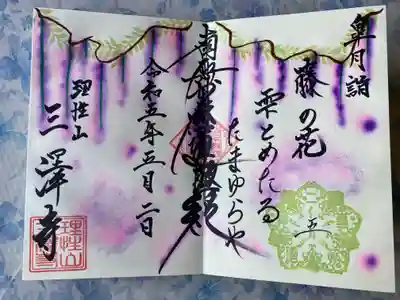 皐月詣
藤の花
雫とめたる
たまゆらや
五
南無妙法蓮華経
令和五年五月二日
理性山
三澤寺